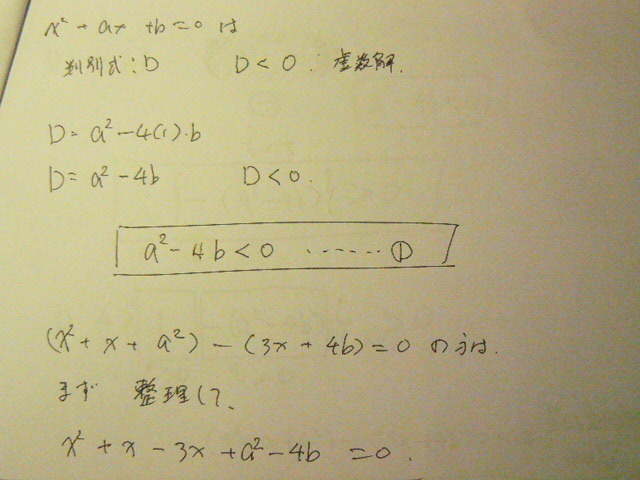 x² + ax + b = 0 は
判別式:D D < 0 : 虚数解.
D = a² - 4(1)・b
D = a² - 4b D < 0.
a² - 4b < 0 ……①
(x² + x + a²) - (3x + 4b) = 0 の方は.
まず 整理して、
x² + x - 3x + a² - 4b = 0.